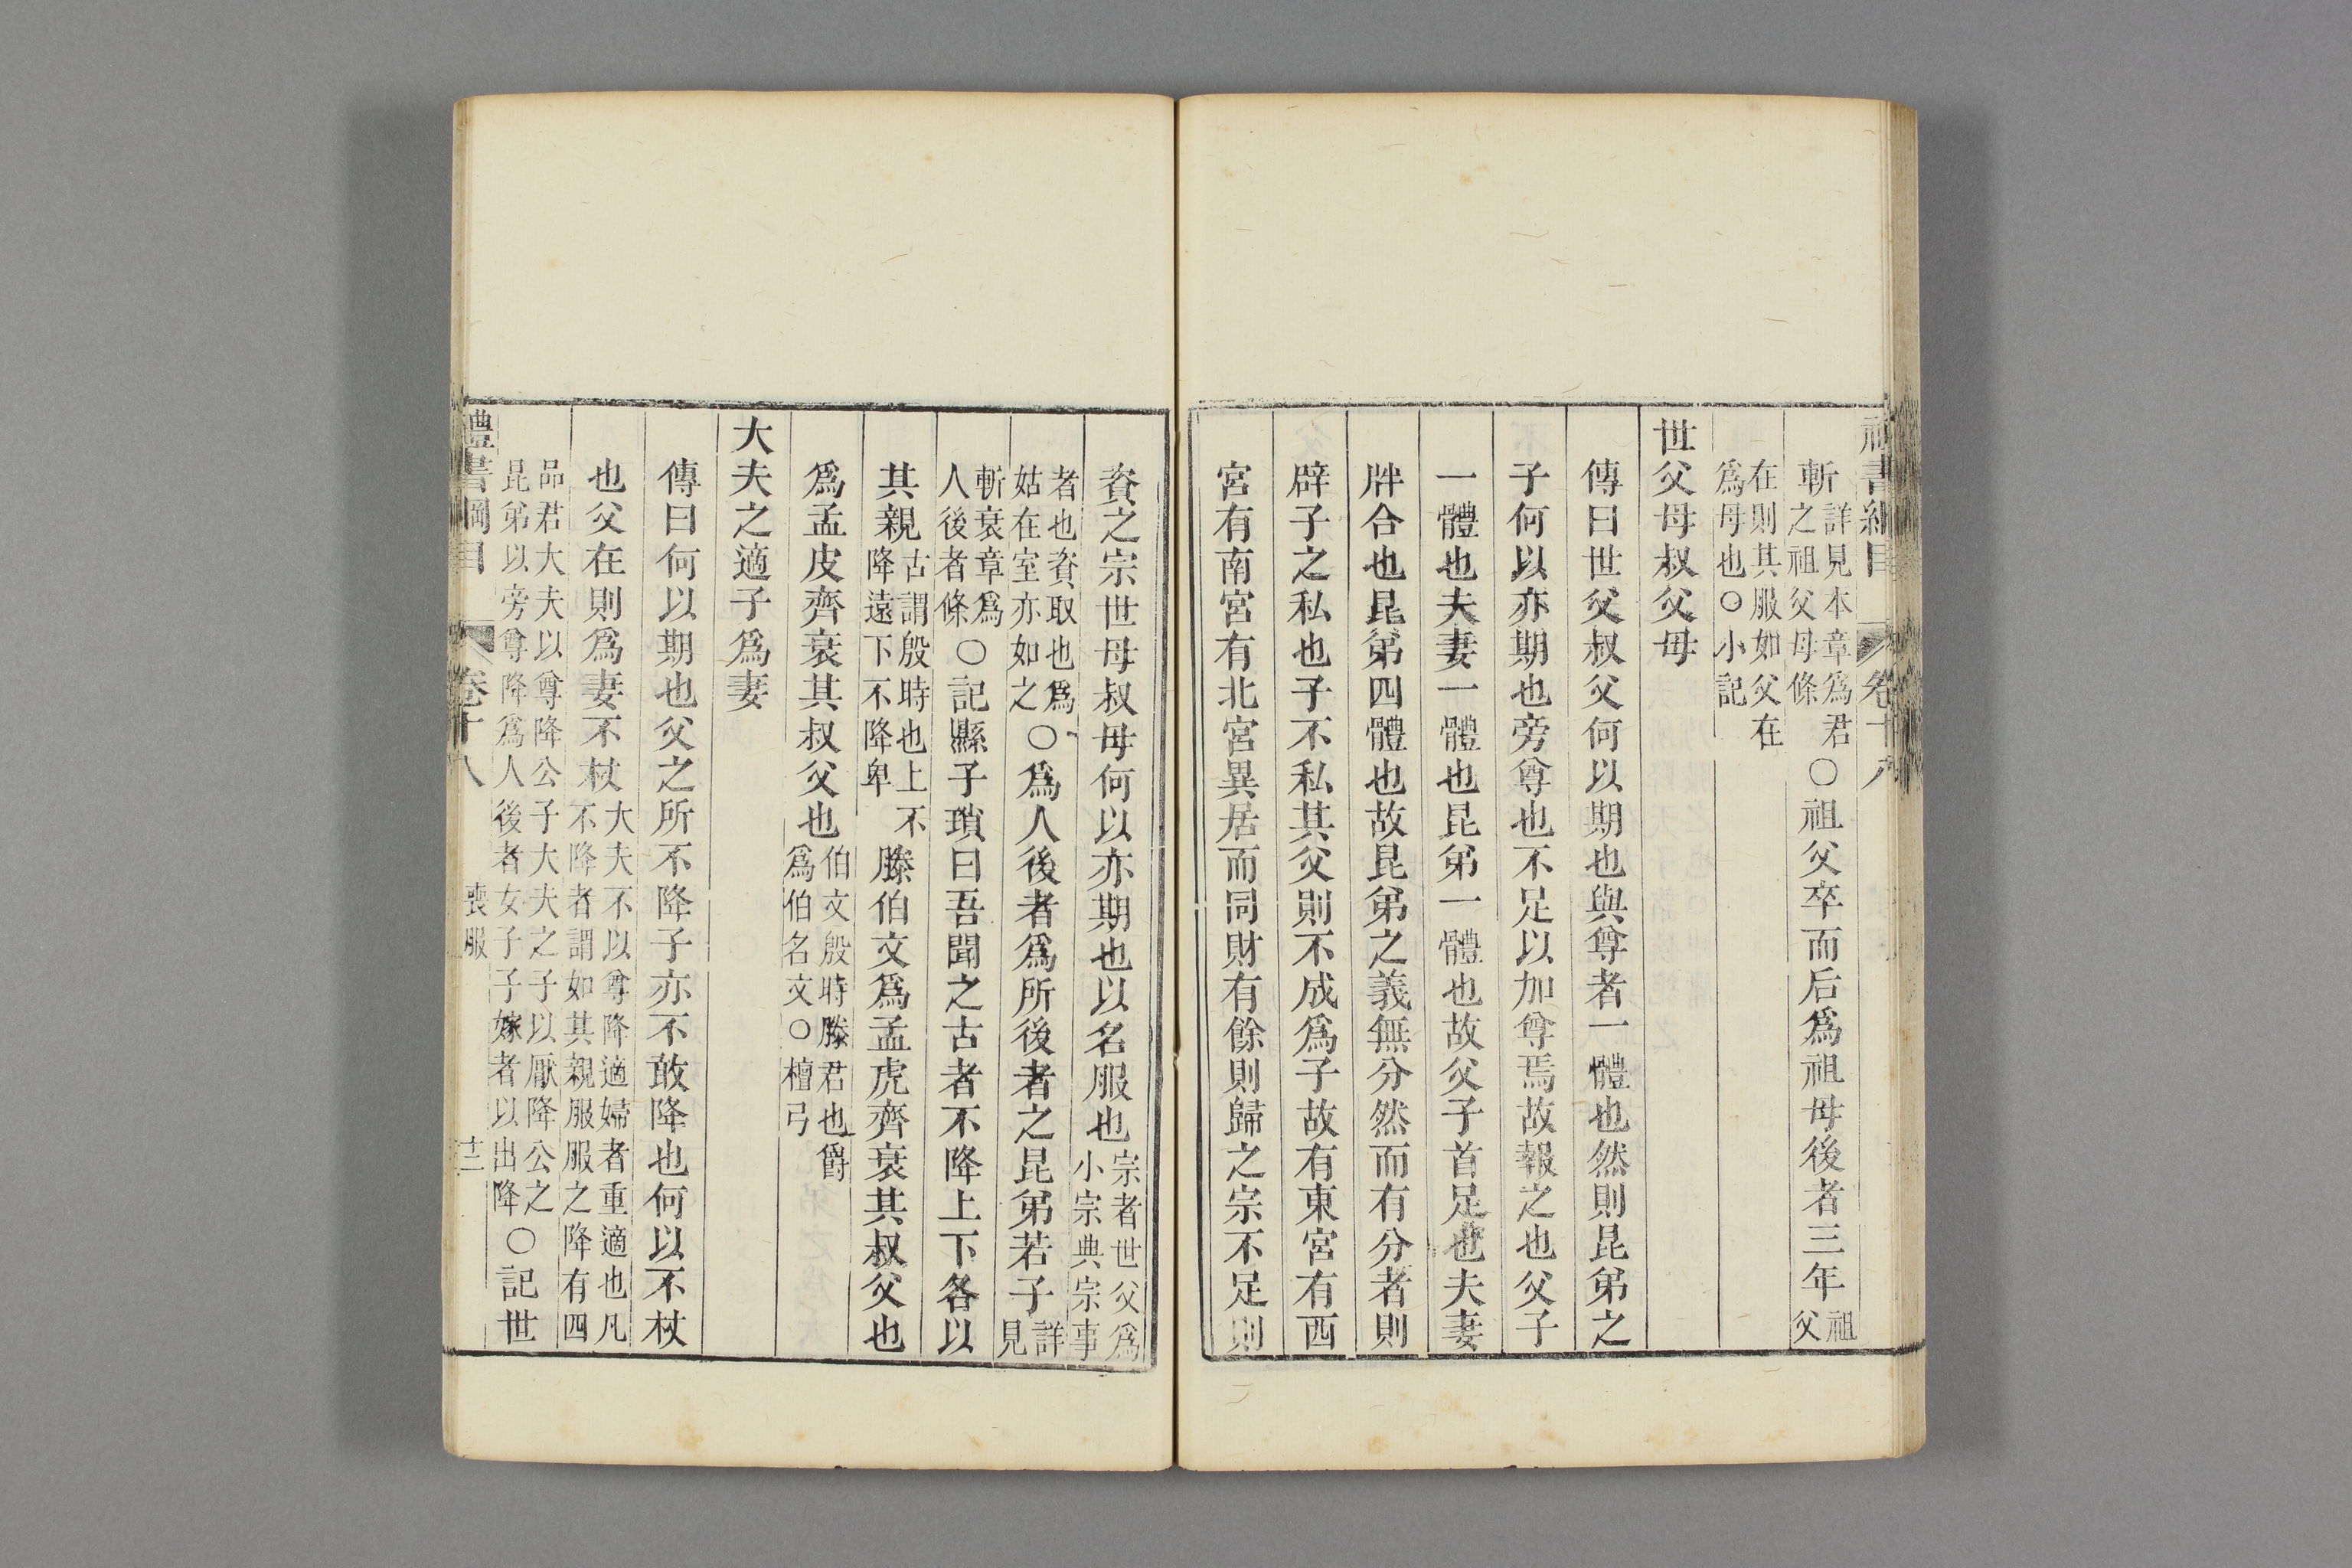 禮書綱目 卷十八
斬詳見本章爲君之祖父母條〇祖父卒而后爲祖母後者三年祖父
在則其服如父在爲母也〇小記
世父母叔父母
傳曰世父叔父何以期也與尊者一體也然則昆弟之
子何以亦期也旁尊也不足以加尊焉故報之也父子
一體也夫妻一體也昆弟一體也故父子首足也夫妻
牉合也昆弟四體也故昆弟之義無分然而有分者則
辟子之私也子不私其父則不成爲子故有東宮有西
宮有南宮有北宮異居而同財有餘則歸之宗不足則
資之宗世母叔母何以亦期也以名服也宗者世父爲小宗典宗事
者也資取也爲姑在室亦如之〇爲人後者爲所後者之昆弟若子詳見
斬衰章爲人後者條〇記縣子瑣曰吾聞之古者不降上下各以
其親古謂殷時也上不降遠下不降卑滕伯文爲孟虎齊衰其叔父也
爲孟皮齊衰其叔父也伯文殷時滕君也爵爲伯名文〇檀弓
大夫之適子爲妻
傳曰何以期也父之所不降子亦不敢降也何以不杖
也父在則爲妻不杖大夫不以尊降適婦者重適也凡不降者謂如其親服服之降有四
品君大夫以尊降公子大夫之子以厭降公之昆弟以旁尊降爲人後者女子子嫁者以出降〇記世
禮書綱目 卷十八 喪服 十二